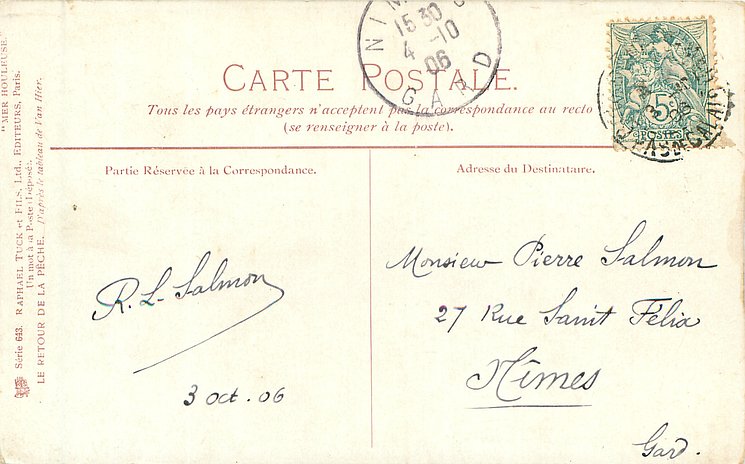 CARTE POSTALE.
Tous les pays étrangers n'acceptent pas la correspondance au recto
(se renseigner à la poste).
Partie Réservée à la Correspondance.
Adresse du Destinataire.
R. L. Salmon
3 oct. 06
Monsieur Pierre Salmon
27 Rue Saint Félix
Nîmes
Gard.
15 30
4 -10
06
GARD
5
POSTES
PAS DE CALAIS
"MER HOULEUSE."
Série 643. RAPHAEL TUCK et FILS, Ltd., EDITEURS, Paris.
Un mot à la Poste (Déposé).
LE RETOUR DE LA PÊCHE. D'après le tableau de Van Hier.